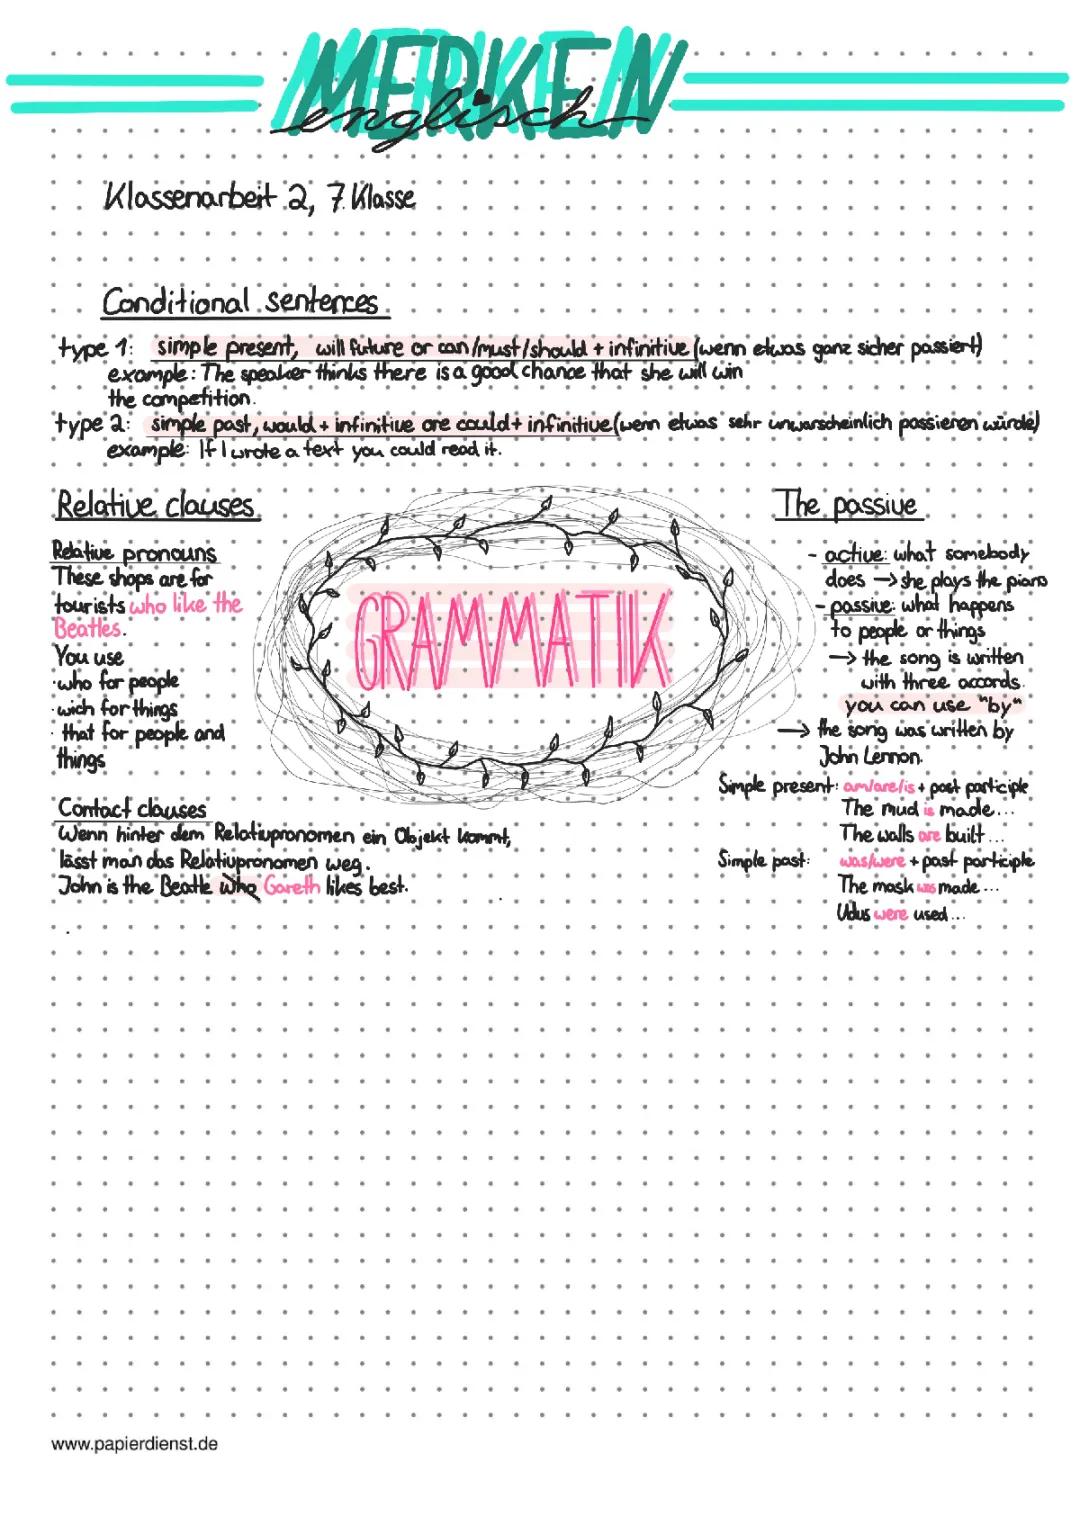 MERKEN
englisch
Klassenarbeit 2, 7. Klasse
Conditional sentences
type 1: simple present, will future or can/must/should + infinitive (wenn etwas ganz sicher passiert)
example: The speaker thinks there is a good chance that she will win
the competition.
type 2: simple past, would + infinitive ore could + infinitive (wenn etwas sehr unwarscheinlich passieren würde)
example: If I wrote a text you could read it.
Relative clauses
Relative pronouns
These shops are for
tourists who like the
Beatles.
You use
·who for people
·wich for things
· that for people and
things
Contact clauses
Wenn hinter dem Relativpronomen ein Objekt kommt,
lässt man das Relativpronomen weg.
John is the Beatle who Gareth likes best.
GRAMMATIK
The passive
- active: what somebody
does → she plays the piano
- passive: what happens
to people or things
→ the song is written
with three accords.
you can use "by"
→ the song was written by
John Lennon.
Simple present: am/are/is + past participle
The mud is made...
The walls are built...
Simple past: was/were + past participle
The mask was made...
Udus were used...
www.papierdienst.de